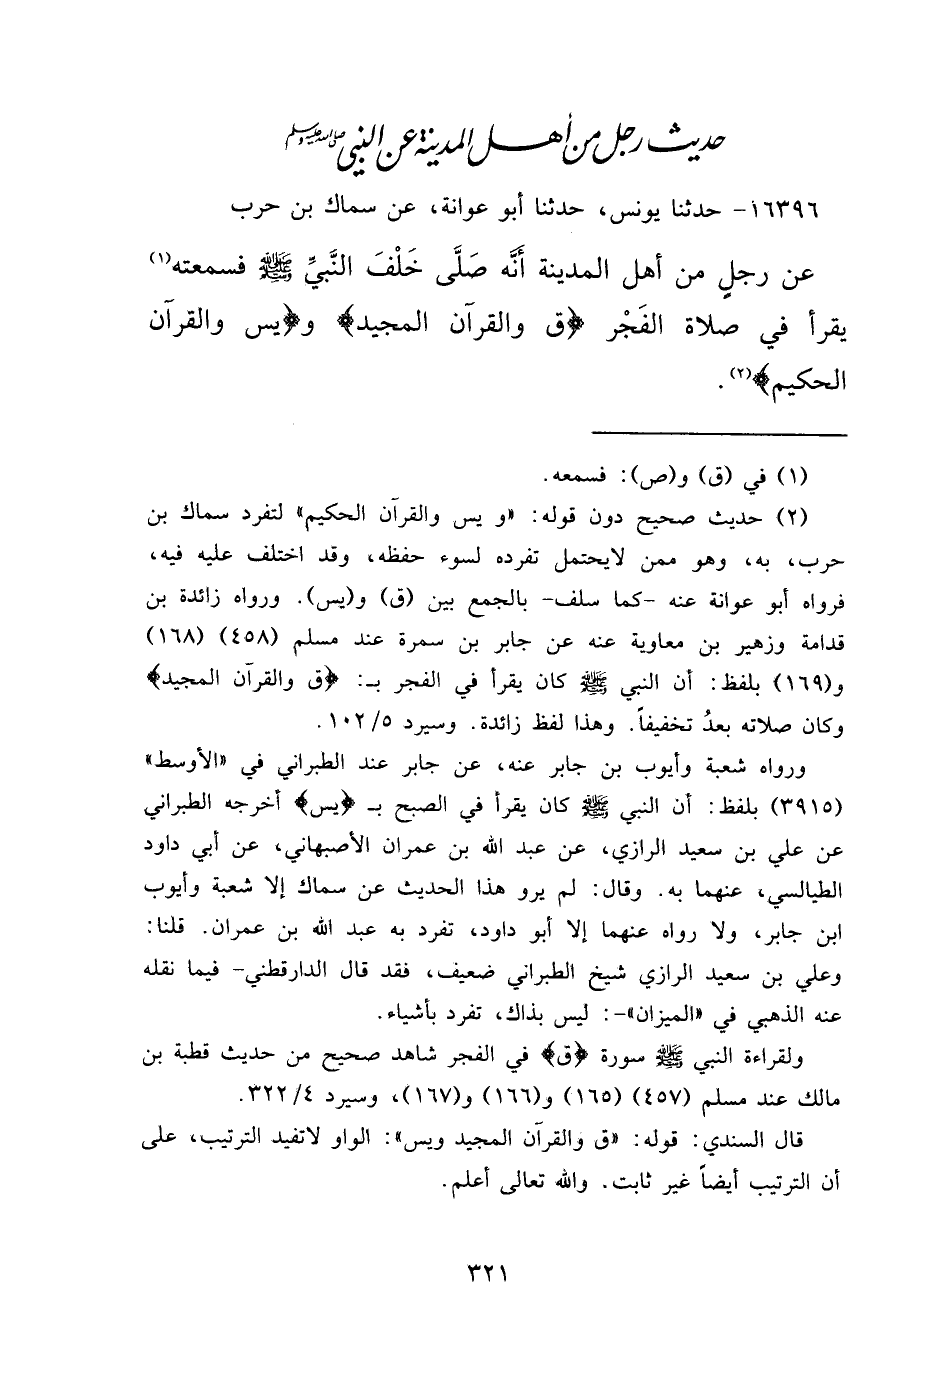 حديث رجل من أهل المدينة عن النبي صلى الله عليه وسلم
١٦٣٩٦- حدثنا يونس، حدثنا أبو عوانة، عن سماك بن حرب
عن رجلٍ من أهل المدينة أَنَّه صَلَّى خَلْفَ النَّبيِّ ﷺ فسمعته(١)
يقرأ في صلاة الفَجْر ﴿ق والقرآن المجيد﴾ و﴿يس والقرآن
الحكيم﴾(٢).
(١) في (ق) و(ص): فسمعه.
(٢) حديث صحيح دون قوله: «و يس والقرآن الحكيم» لتفرد سماك بن
حرب، به، وهو ممن لايحتمل تفرده لسوء حفظه، وقد اختلف عليه فيه،
فرواه أبو عوانة عنه -كما سلف- بالجمع بين (ق) و(يس). ورواه زائدة بن
قدامة وزهير بن معاوية عنه عن جابر بن سمرة عند مسلم (٤٥٨) (١٦٨)
و(١٦٩) بلفظ: أن النبي ﷺ كان يقرأ في الفجر بـ: ﴿ق والقرآن المجيد﴾
وكان صلاته بعدُ تخفيفاً. وهذا لفظ زائدة. وسيرد ١٠٢/٥.
ورواه شعبة وأيوب بن جابر عنه، عن جابر عند الطبراني في «الأوسط»
(٣٩١٥) بلفظ: أن النبي ﷺ كان يقرأ في الصبح بـ ﴿يس﴾ أخرجه الطبراني
عن علي بن سعيد الرازي، عن عبد الله بن عمران الأصبهاني، عن أبي داود
الطيالسي، عنهما به. وقال: لم يرو هذا الحديث عن سماك إلا شعبة وأيوب
ابن جابر، ولا رواه عنهما إلا أبو داود، تفرد به عبد الله بن عمران. قلنا:
وعلي بن سعيد الرازي شيخ الطبراني ضعيف، فقد قال الدارقطني- فيما نقله
عنه الذهبي في «الميزان»-: ليس بذاك، تفرد بأشياء.
ولقراءة النبي ﷺ سورة ﴿ق﴾ في الفجر شاهد صحيح من حديث قطبة بن
مالك عند مسلم (٤٥٧) (١٦٥) و(١٦٦) و(١٦٧)، وسيرد ٣٢٢/٤.
قال السندي: قوله: «ق والقرآن المجيد ويس»: الواو لاتفيد الترتيب، على
أن الترتيب أيضاً غير ثابت. والله تعالى أعلم.
٣٢١